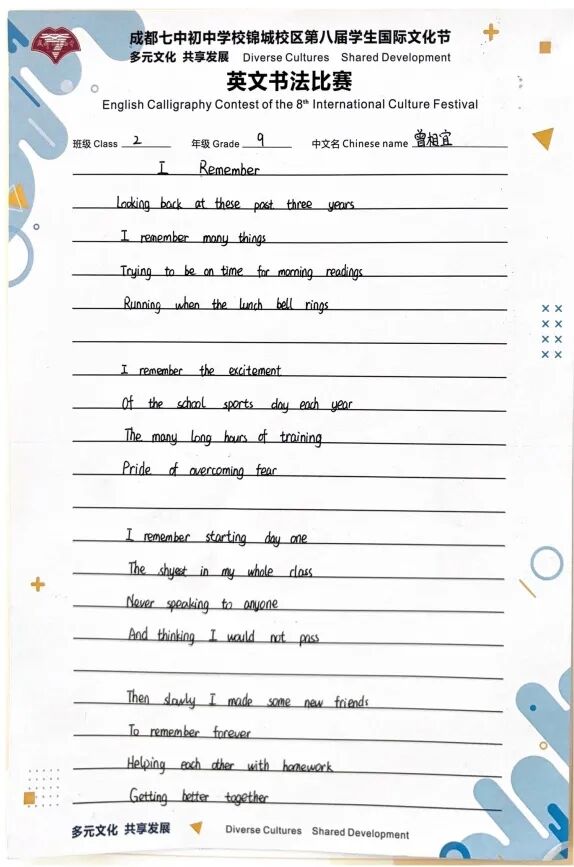 成都七中初中学校锦城校区第八届学生国际文化节
多元文化 共享发展 Diverse Cultures Shared Development
英文书法比赛
English Calligraphy Contest of the 8th International Culture Festival
班级 Class 2 年级 Grade 9 中文名 Chinese name 曾相宜
I Remember
Looking back at these past three years
I remember many things
Trying to be on time for morning readings
Running when the lunch bell rings
I remember the excitement
Of the school sports day each year
The many long hours of training
Pride of overcoming fear
I remember starting day one
The shyest in my whole class
Never speaking to anyone
And thinking I would not pass
Then slowly I made some new friends
To remember forever
Helping each other with homework
Getting better together
多元文化 共享发展 Diverse Cultures Shared Development